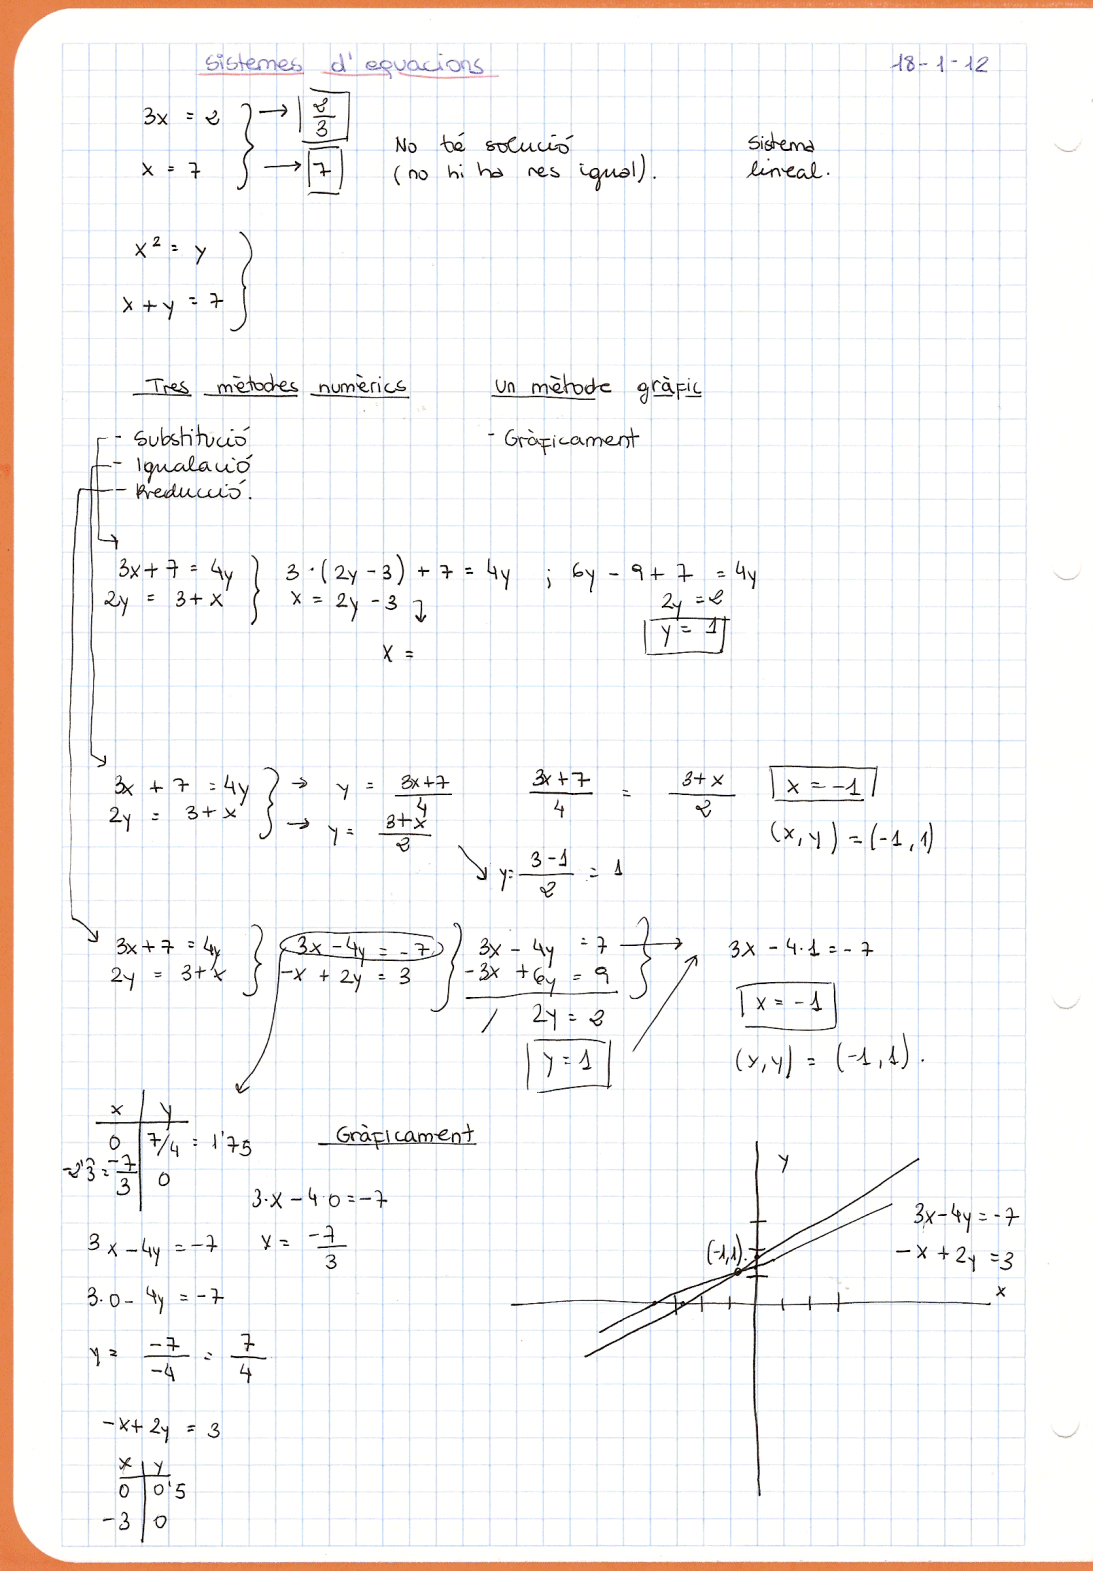 Sistemes d'equacions 18-1-12
3x = 2 → 2/3
x = 7 → 7
No té solució
(no hi ha res igual).
Sistema
lineal.
x² = y
x + y = 7
Tres mètodes numèrics
- Substitució
- Igualació
- Reducció.
un mètode gràfic
- Gràficament
3x + 7 = 4y } 3·(2y - 3) + 7 = 4y ; 6y - 9 + 7 = 4y
2y = 3 + x } x = 2y - 3 2y = 2
x = y = 1
3x + 7 = 4y } → y = 3x+7/4 3x+7/4 = 3+x/2 x = -1
2y = 3 + x } → y = 3+x/2 (x, y) = (-1, 1)
y = 3-1/2 = 1
3x + 7 = 4y } 3x - 4y = -7 } 3x - 4y = 7 } → 3x - 4·1 = -7
2y = 3 + x } -x + 2y = 3 } -3x + 6y = 9 }
/ 2y = 2 x = -1
y = 1 (x, y) = (-1, 1).
x | y
0 | 7/4 = 1'75
-2'3 = -7/3 | 0
Gràficament
3·x - 4·0 = -7
x = -7/3
3x - 4y = -7
3·0 - 4y = -7
y = -7/-4 = 7/4
-x + 2y = 3
x | y
0 | 0'5
-3 | 0
y
(-1,1).
3x - 4y = -7
-x + 2y = 3
x